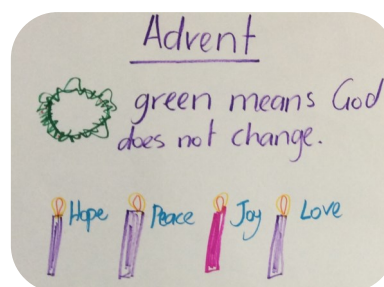 Advent
green means God
does not change.
Hope Peace Joy Love